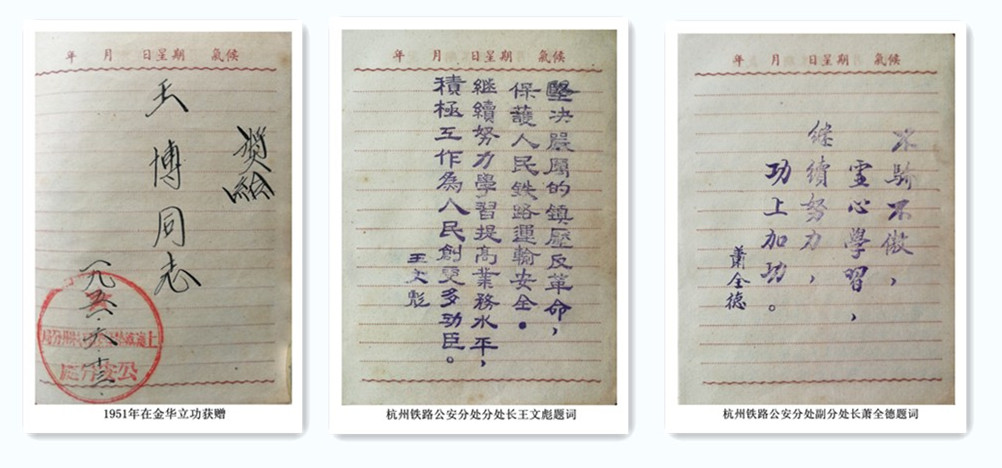 年 月 日星期 氣候
奬給
王博同志
公安分處
1951年在金华立功获赠
年 月 日星期 氣候
堅决嚴厲的鎮壓反革命，
保護人民铁路運輸安全。
继續努力學習提高業務水平，
積極工作為人民創更多功臣。
王文彪
杭州铁路公安分处分处长王文彪题词
年 月 日星期 氣候
不驕不傲，
虚心學習，
继續努力，
功上加功。
蕭全德
杭州铁路公安分处副分处长萧全德题词